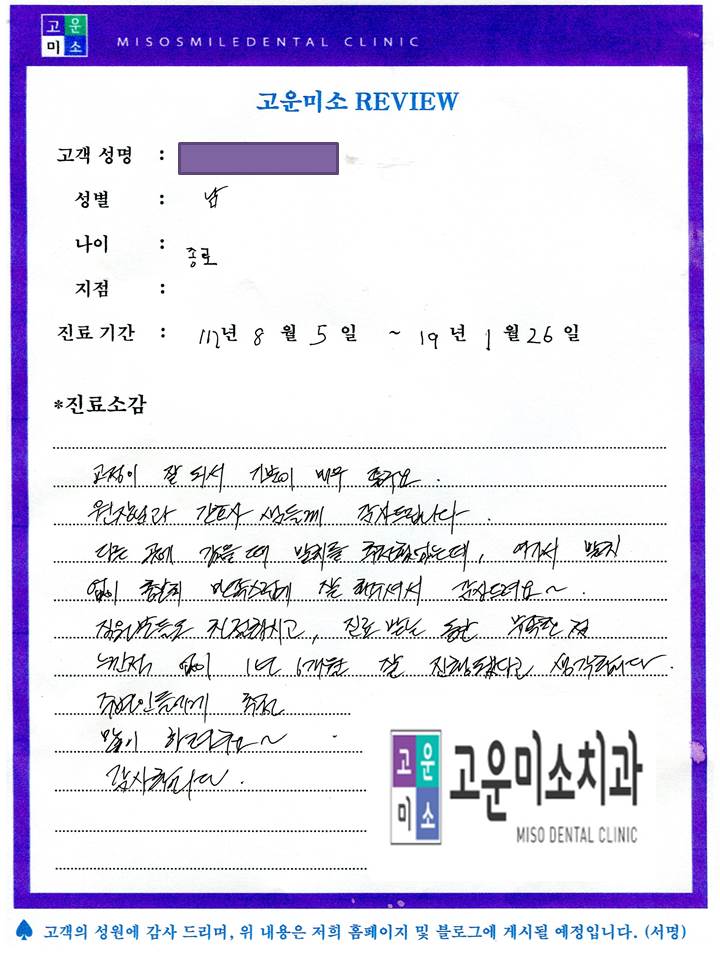 고운
미소
MISOSMILEDENTAL CLINIC
고운미소 REVIEW
고객 성명 :
성별 : 남
나이 :
종로
지점 :
진료 기간 : 117년 8 월 5 일 ~ 19 년 1 월 26 일
*진료소감
교정이 잘 되서 기분이 매우 좋구요.
원장님과 간호사 쌤들께 감사드립니다.
다른 곳에 갔을 때 발치를 추천받았는데, 여기서 발치
없이 출발치 만족스럽게 잘 해주셔서 감사드려요~.
직원분들은 친절하시고, 진료 받는 동안 부족한 점
느낀적 없이 1년 6개월 잘 진행됐다고 생각합니다.
주변인들에게 추천
많이 하려구요~
감사합니다.
고운
미소
고운미소치과
MISO DENTAL CLINIC
♠ 고객의 성원에 감사 드리며, 위 내용은 저희 홈페이지 및 블로그에 게시될 예정입니다. (서명)